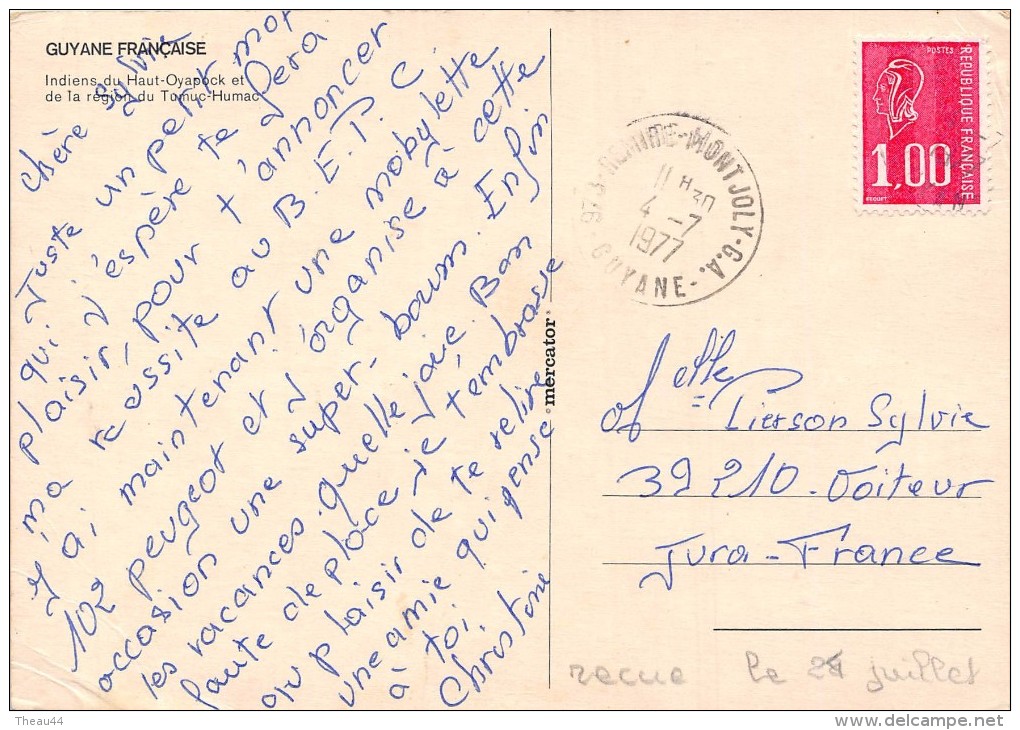 GUYANE FRANÇAISE
Indiens du Haut-Oyapock et
de la région du Tumuc-Humac
chère Sylvie
Juste un petit mot
qui j'espère te fera
plaisir, pour t'annoncer
ma réussite au B.E.P.C
J'ai maintenant une mobylette
102 peugeot et j'organise à cette
occasion une super-boum. Enfin
les vacances. quelle joie. Bon
faute de place je t'embrasse
au plaisir de te relire
une amie qui pense
à toi.
Christine
°mercator°
973-REMIRE-MONTJOLY-G.A.
11 H30
4 -7
1977
GUYANE-
POSTES
REPUBLIQUE FRANÇAISE
1,00
Melle Pierson Sylvie
39210. Voiteur
Jura-France
recue le juillet
Theau44
www.delcampe.net